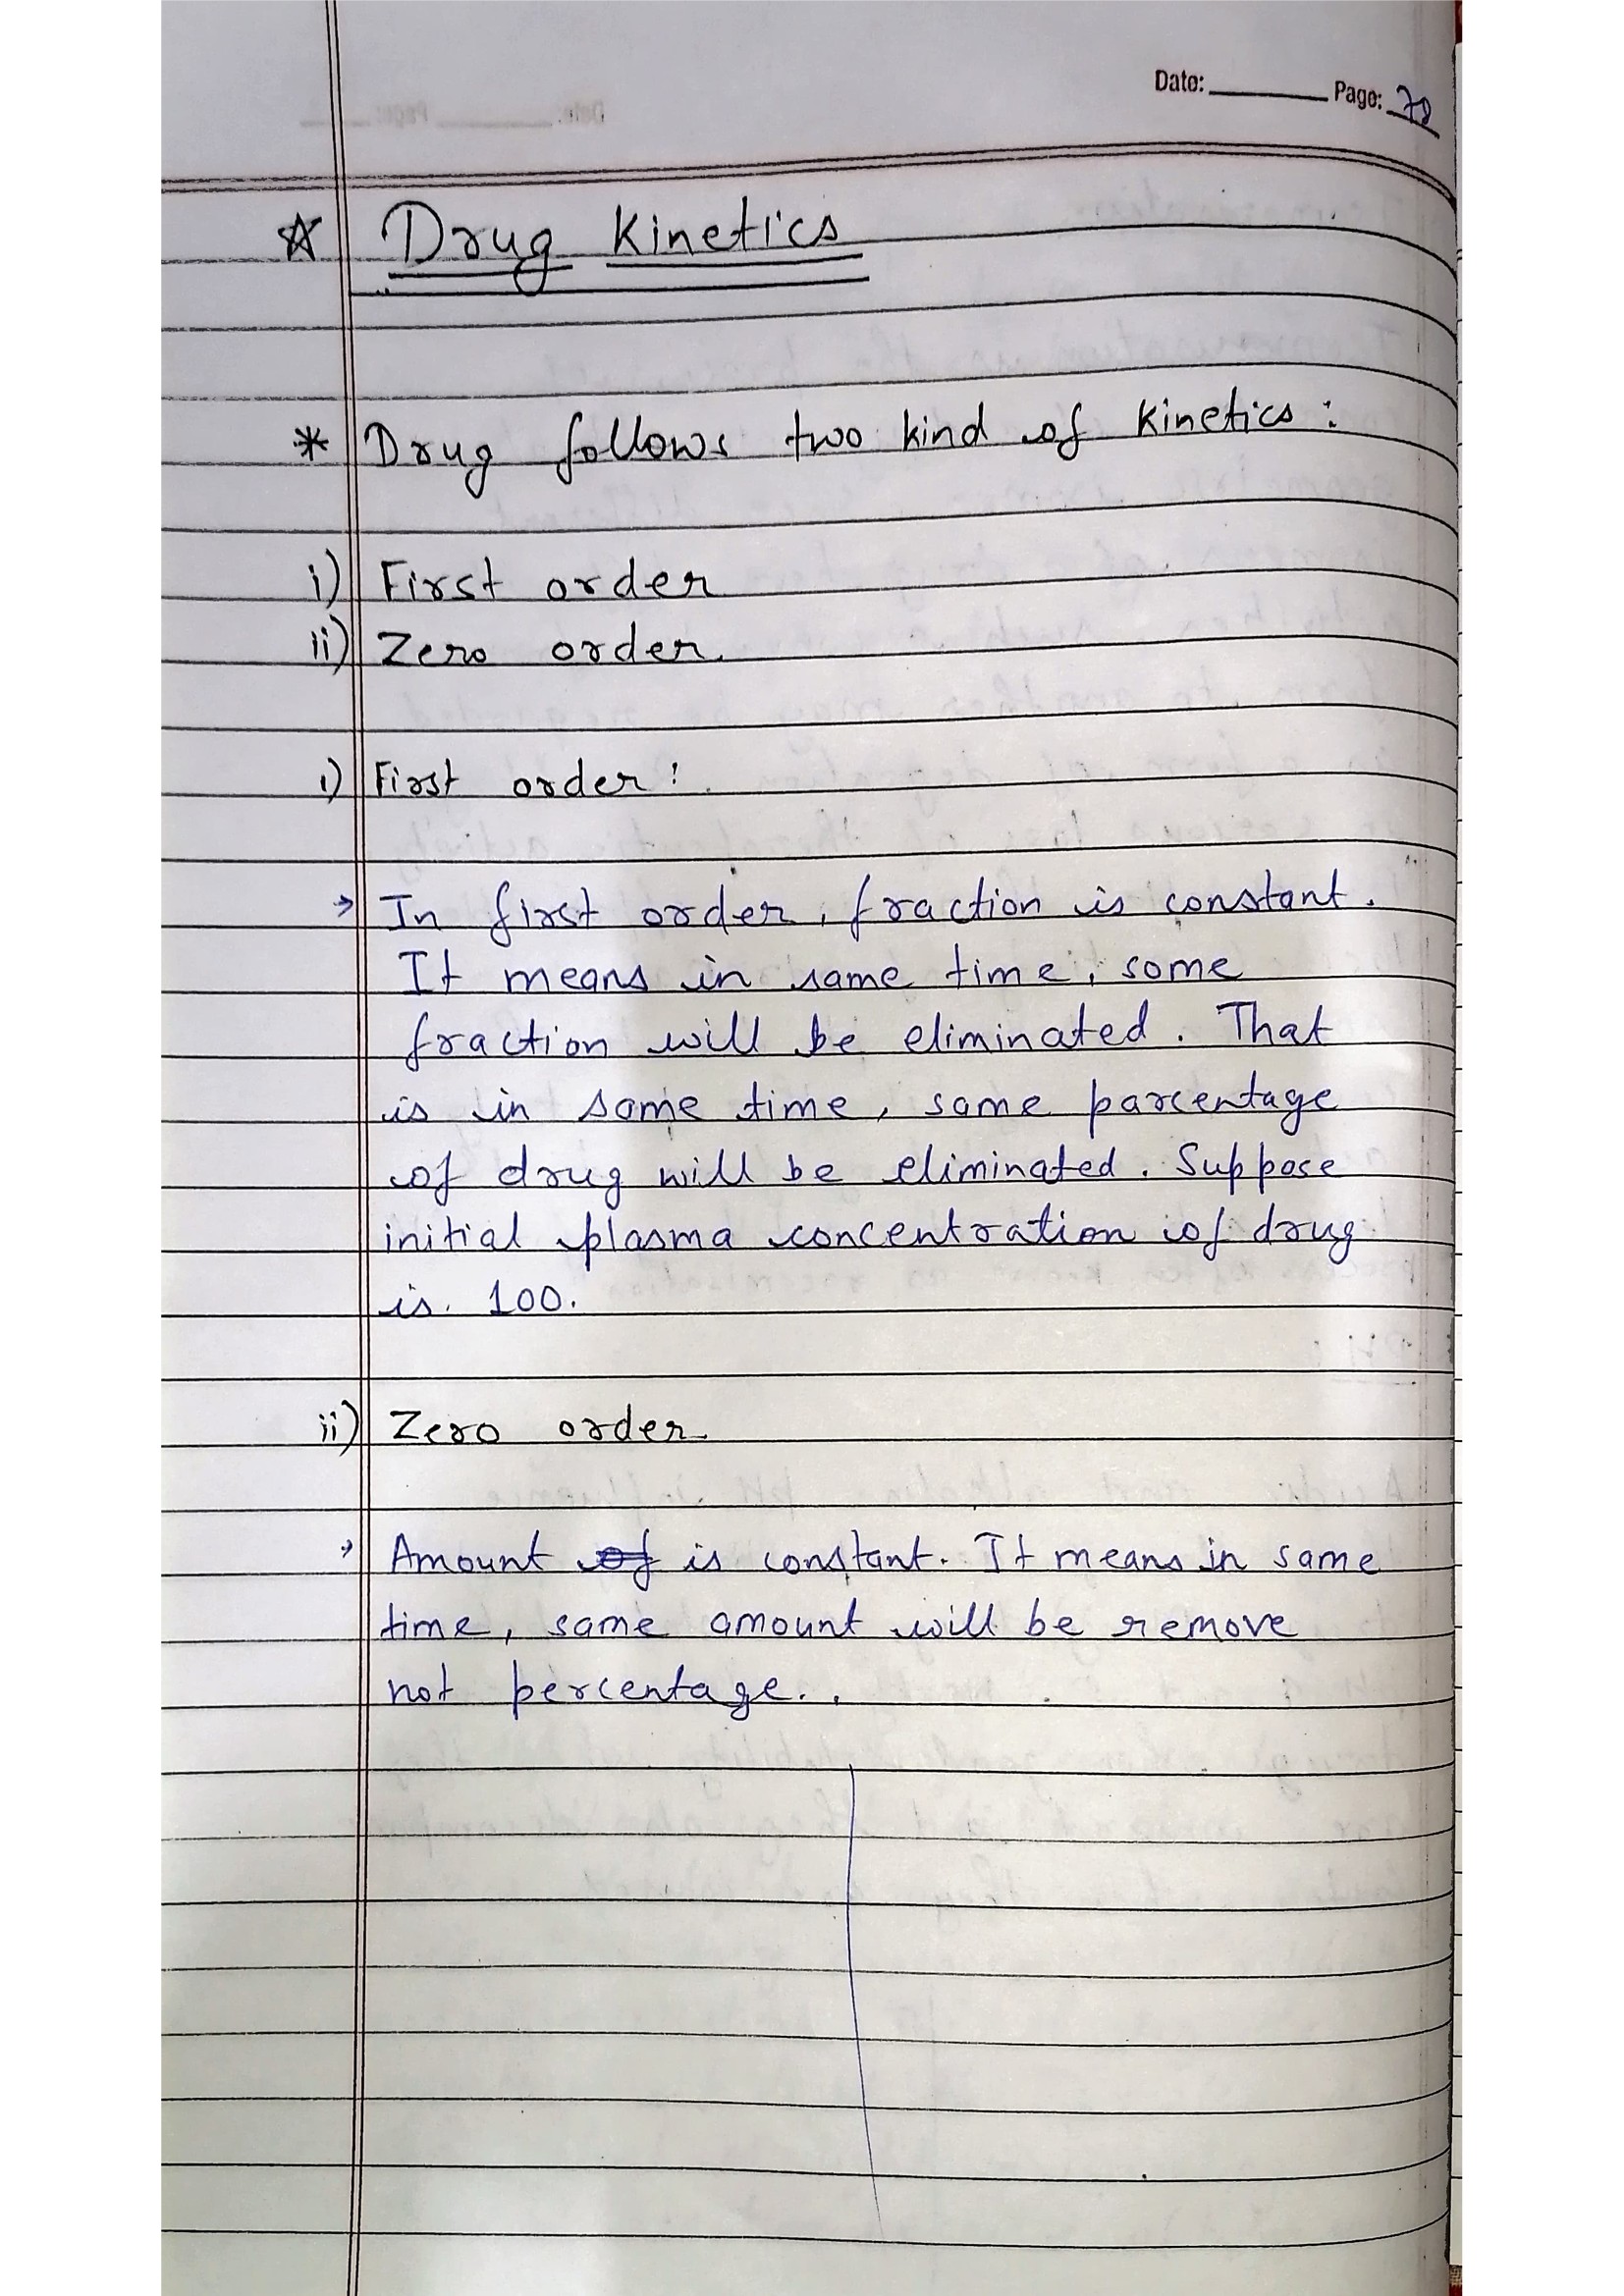 Date: Page: 70
☆ Drug Kinetics
* Drug follows two kind of kinetics :
i) First order
ii) Zero order.
i) First order :
→ In first order, fraction is constant.
It means in same time, some
fraction will be eliminated. That
is in same time, same parcentage
of drug will be eliminated. Suppose
initial plasma concentration of drug
is 100.
ii) Zero order
→ Amount of is constant. It means in same
time, same amount will be remove
not percentage.